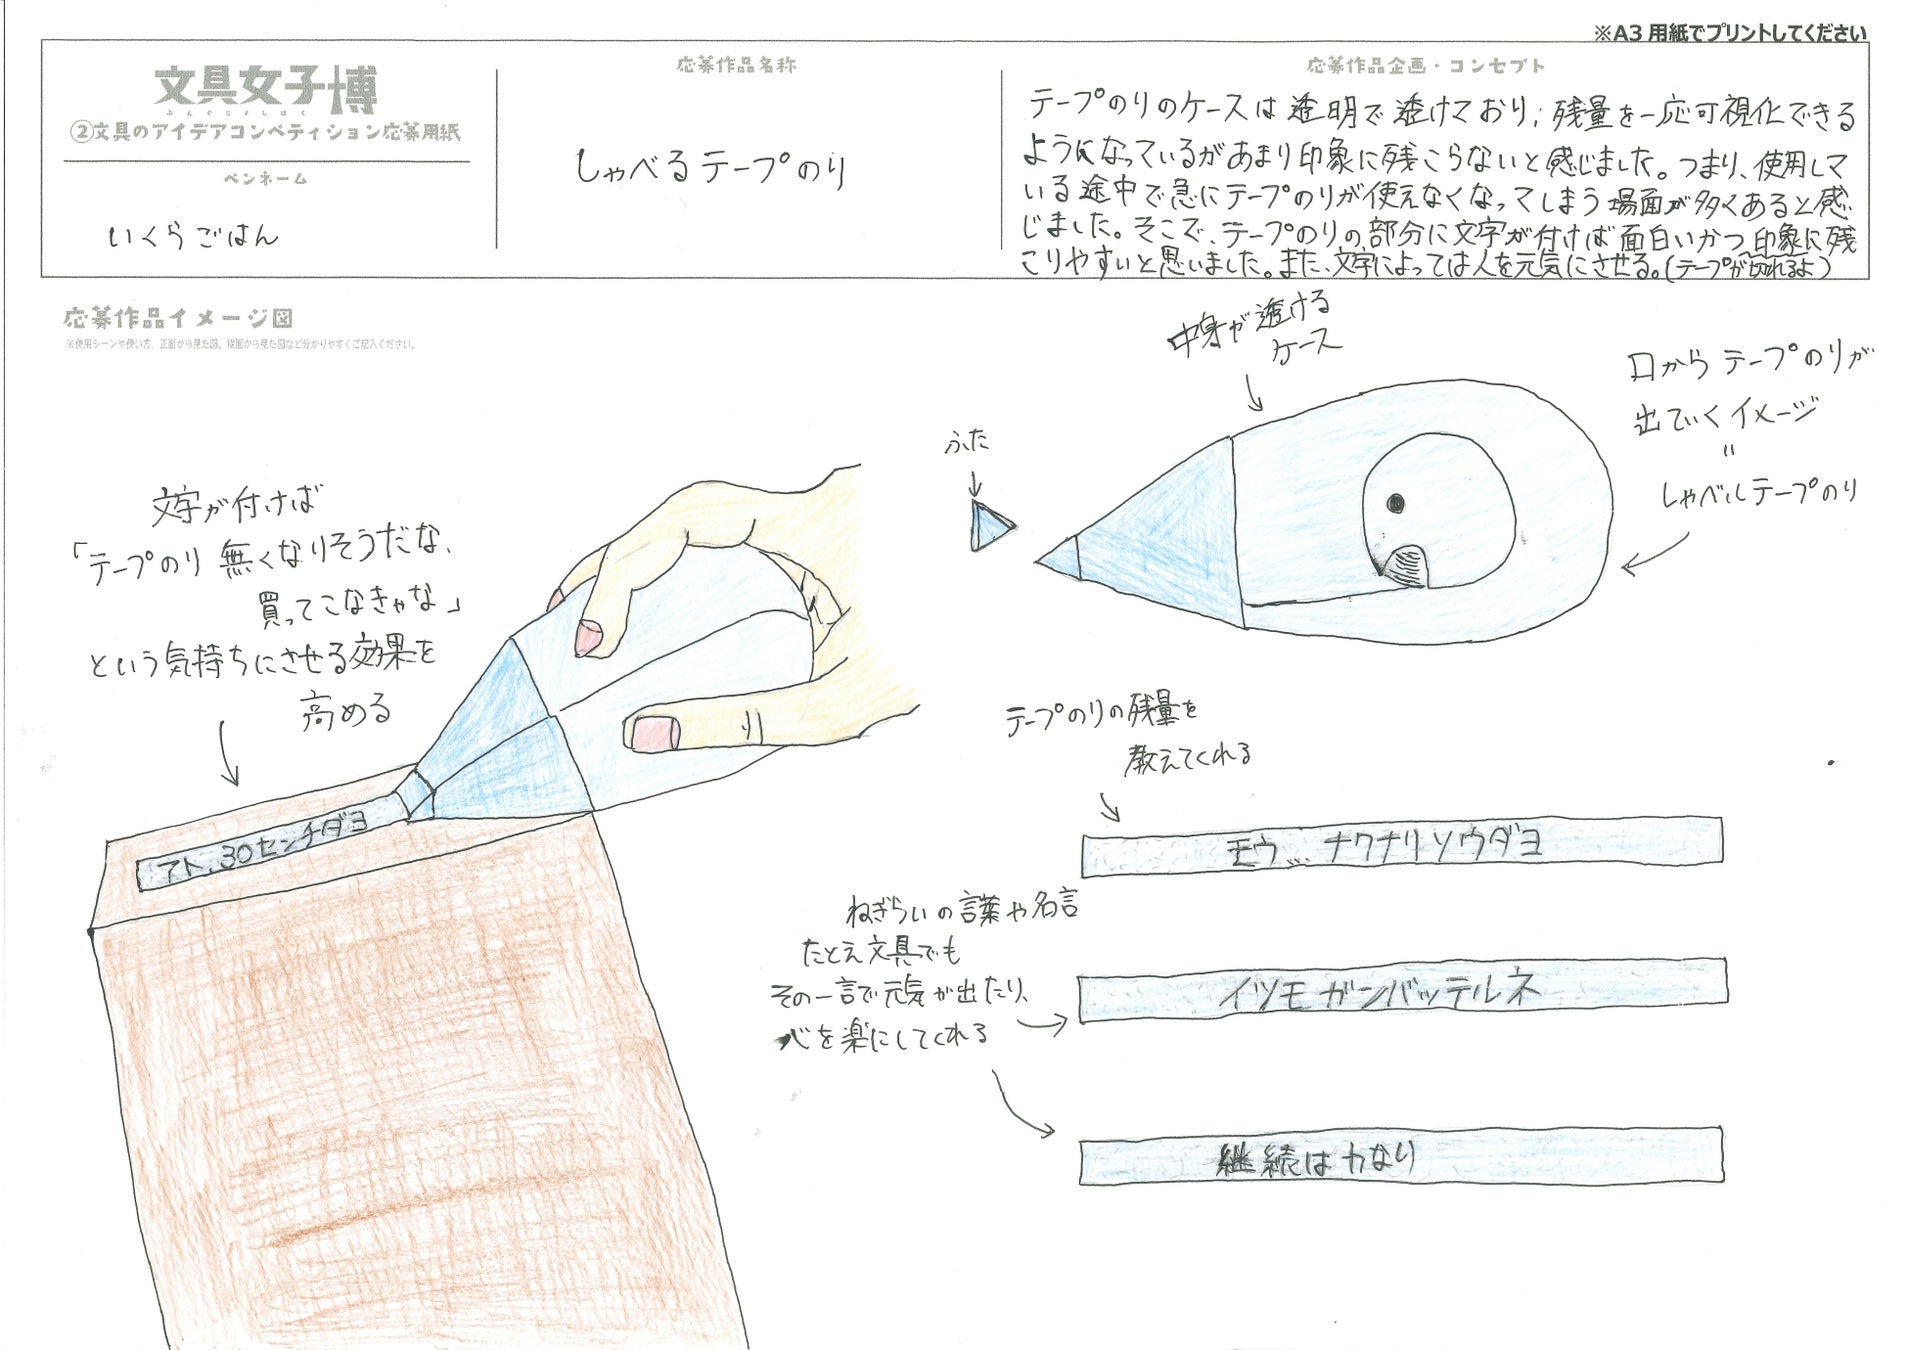 ※A3 用紙でプリントしてください
文具女子博
ぶんぐじょしはく
②文具のアイデアコンペティション応募用紙
ペンネーム
いくらごはん
応募作品名称
しゃべるテープのり
応募作品企画・コンセプト
テープのりのケースは透明で透けており、残量を一応可視化できる
ようになっているがあまり印象に残こらないと感じました。つまり、使用して
いる途中で急にテープのりが使えなくなってしまう場面が多くあると感
じました。そこで、テープのりの部分に文字が付けば面白いかつ印象に残
こりやすいと思いました。また、文字によっては人を元気にさせる。(テープが切れるよ)
応募作品イメージ図
※使用シーンや使い方、正面から見た図、後面から見た図など分かりやすくご記入ください。
中身が透ける
ケース
口からテープのりが
出ていくイメージ
〃
しゃべルテープのり
ふた
文字が付けば
「テープのり無くなりそうだな、
買ってこなきゃな」
という気持ちにさせる効果を
高める
アト、30センチダヨ
テープのりの残量を
教えてくれる
モウ... ナクナリソウダヨ
ねぎらいの言葉や名言
たとえ文具でも
その一言で元気が出たり、
心を楽にしてくれる
イツモガンバッテルネ
継続は力なり